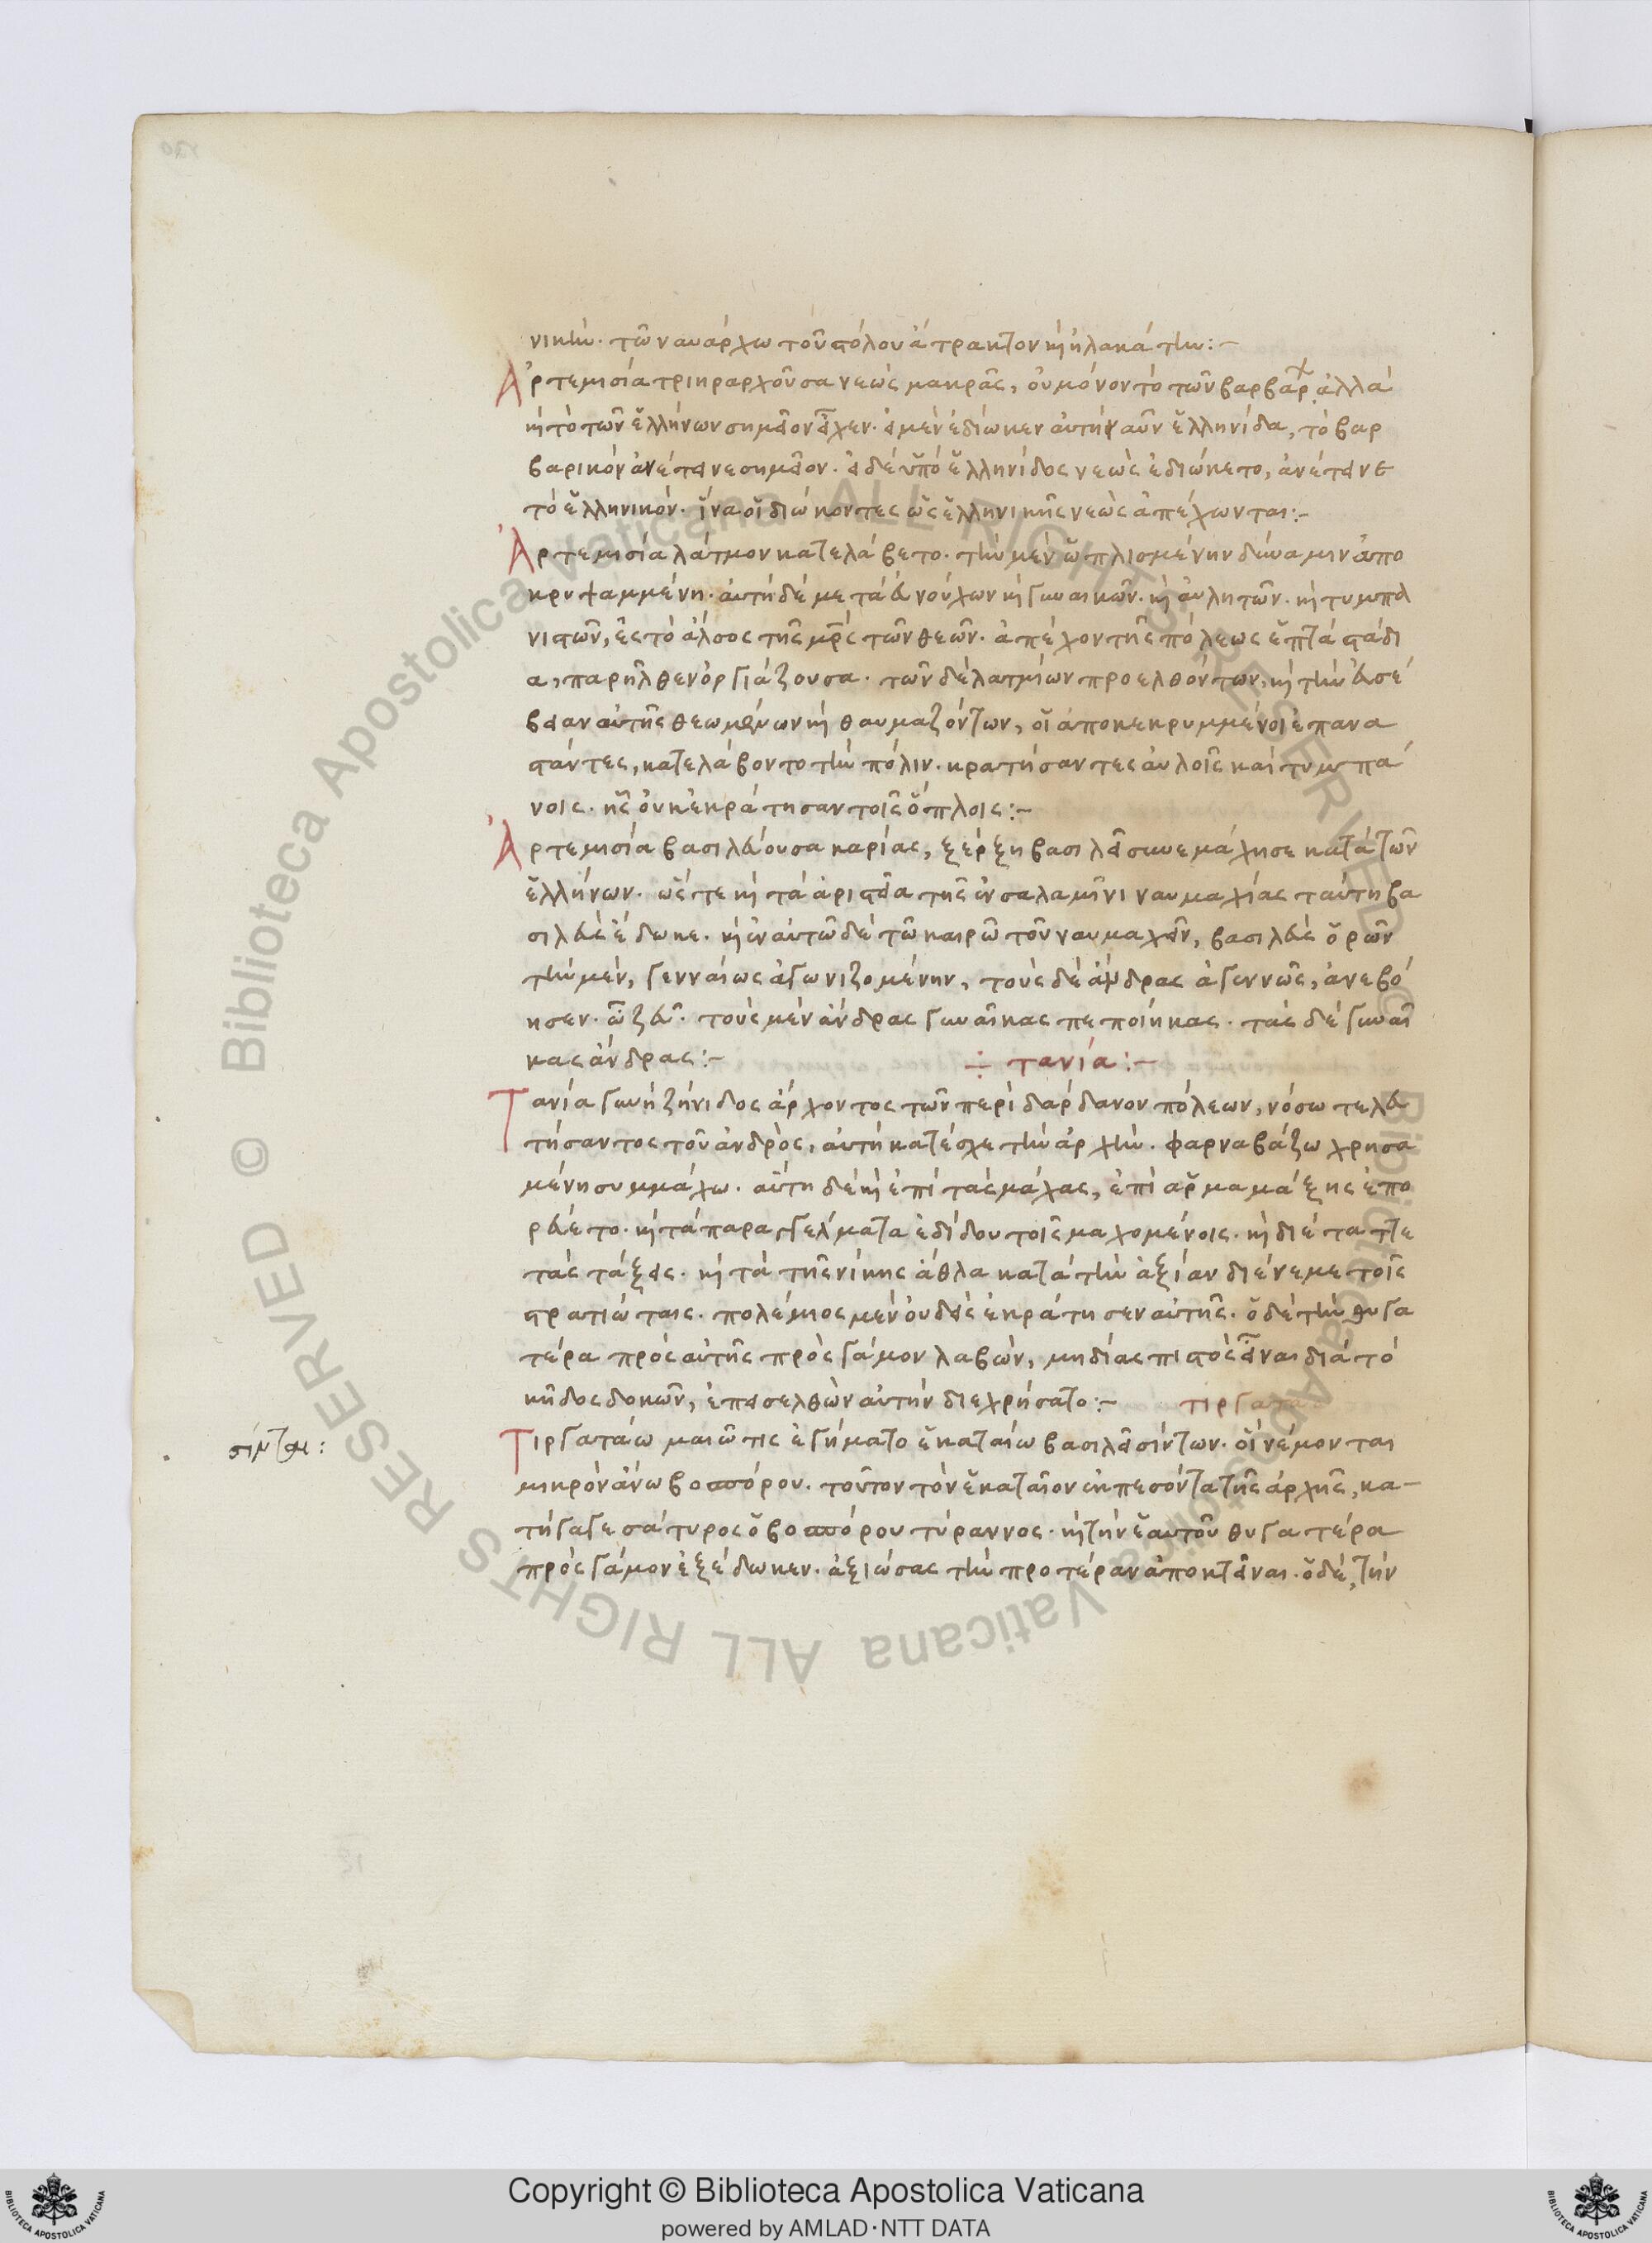 νικὴν· τῶ ναυάρχω τοῦ στόλου ἄτρακτον καὶ ἠλακάτην:-
Ἀρτεμισία τριηραρχοῦσα νεὼς μακρᾶς, οὐ μόνον τὸ τῶν βαρβάρ ἀλλὰ
καὶ τὸ τῶν ἑλλήνων σημεῖον εἶχεν· εἰ μὲν ἐδίωκεν αὐτὴ ναῦν ἑλληνίδα, τὸ βαρ
βαρικὸν ἀνέτεινε σημεῖον· εἰ δὲ ὑπὸ ἑλληνίδος νεὼς ἐδιώκετο, ἀνέτεινε
τὸ ἑλληνικόν· ἵνα οἱ διώκοντες ὡς ἑλληνικῆς νεὼς ἀπέχωνται:-
Ἀρτεμισία λάτμον κατελάβετο· τὴν μὲν ὡπλισμένην δύναμιν ἀπο
κρυψαμμένη· αὐτὴ δὲ μετὰ εὐνούχων καὶ γυναικῶν· καὶ αὐλητῶν· καὶ τυμπα
νιστῶν, ἐς τὸ ἄλσος τῆς μρς τῶν θεῶν· ἀπέχον τῆς πόλεως ἑπτὰ στάδι
α, παρῆλθεν ὀργιάζουσα· τῶν δὲ λατμίων προελθόντων, καὶ τὴν εὐσέ
βειαν αὐτῆς θεωμένων καὶ θαυμαζόντων, οἱ ἀποκεκρυμμένοι ἐπανα
στάντες, κατελάβοντο τὴν πόλιν· κρατήσαντες αὐλοῖς καὶ τυμπά
νοις· ἧς οὐκ ἐκράτησαν τοῖς ὅπλοις:-
Ἀρτεμισία βασιλεύουσα καρίας, ξέρξη βασιλεῖ συνεμάχησε κατὰ τῶν
ἑλλήνων· ὥς τε καὶ τὰ ἀριστεῖα τῆς ἐν σαλαμῖνι ναυμαχίας ταύτη βα
σιλεὺς ἔδωκε· καὶ ἐν αὐτῶ δὲ τῶ καιρῶ τοῦ ναυμαχεῖν, βασιλεὺς ὁρῶν
τὴν μὲν, γενναίως ἀγωνιζομένην, τοὺς δὲ ἄνδρας ἀγεννῶς, ἀνεβό
ησεν· ὦ ζεῦ· τοὺς μὲν ἄνδρας γυναῖκας πεποίηκας· τὰς δὲ γυναῖ
κας ἄνδρας:- ÷ τανία:-
Τανία γυνὴ ζήνιδος ἄρχοντος τῶν περὶ δάρδανον πόλεων, νόσω τελευ
τήσαντος τοῦ ἀνδρὸς, αὐτὴ κατέσχε τὴν ἀρχὴν· φαρναβάζω χρησα
μένη συμμάχω· αὕτη δὲ καὶ ἐπὶ τὰς μάχας, ἐπὶ ἁρμαμάξης ἐπο
ρεύετο· καὶ τὰ παραγγέλματα ἐδίδου τοῖς μαχομένοις· καὶ διέταττε
τὰς τάξεις· καὶ τὰ τῆς νίκης ἆθλα κατὰ τὴν ἀξίαν διένεμε τοῖς
στρατιώταις· πολέμιος μὲν οὐδεὶς ἐκράτησεν αὐτῆς· ὁ δὲ τὴν θυγα
τέρα πρὸς αὐτῆς πρὸς γάμον λαβὼν, μηδίας πιστὸς εἶναι διὰ τὸ
κῆδος δοκῶν, ἐπεισελθὼν αὐτὴν διεχρήσατο:- τιργατα
Τιργαταώ μαιῶτις ἐγήματο ἑκαταίω βασιλεῖ σίντων· οἳ νέμονται
μικρὸν ἄνω βοσπόρου· τοῦτον τὸν ἑκαταῖον ἐκπεσόντα τῆς ἀρχῆς, κα-
τήγαγε σάτυρος ὁ βοσπόρου τύραννος· καὶ τὴν ἑαυτοῦ θυγατέρα
πρὸς γάμον ἐξέδωκεν· ἀξιώσας τὴν προτέραν ἀποκτεῖναι· ὁ δὲ, τὴν
σίνται:
Copyright © Biblioteca Apostolica Vaticana
powered by AMLAD·NTT DATA